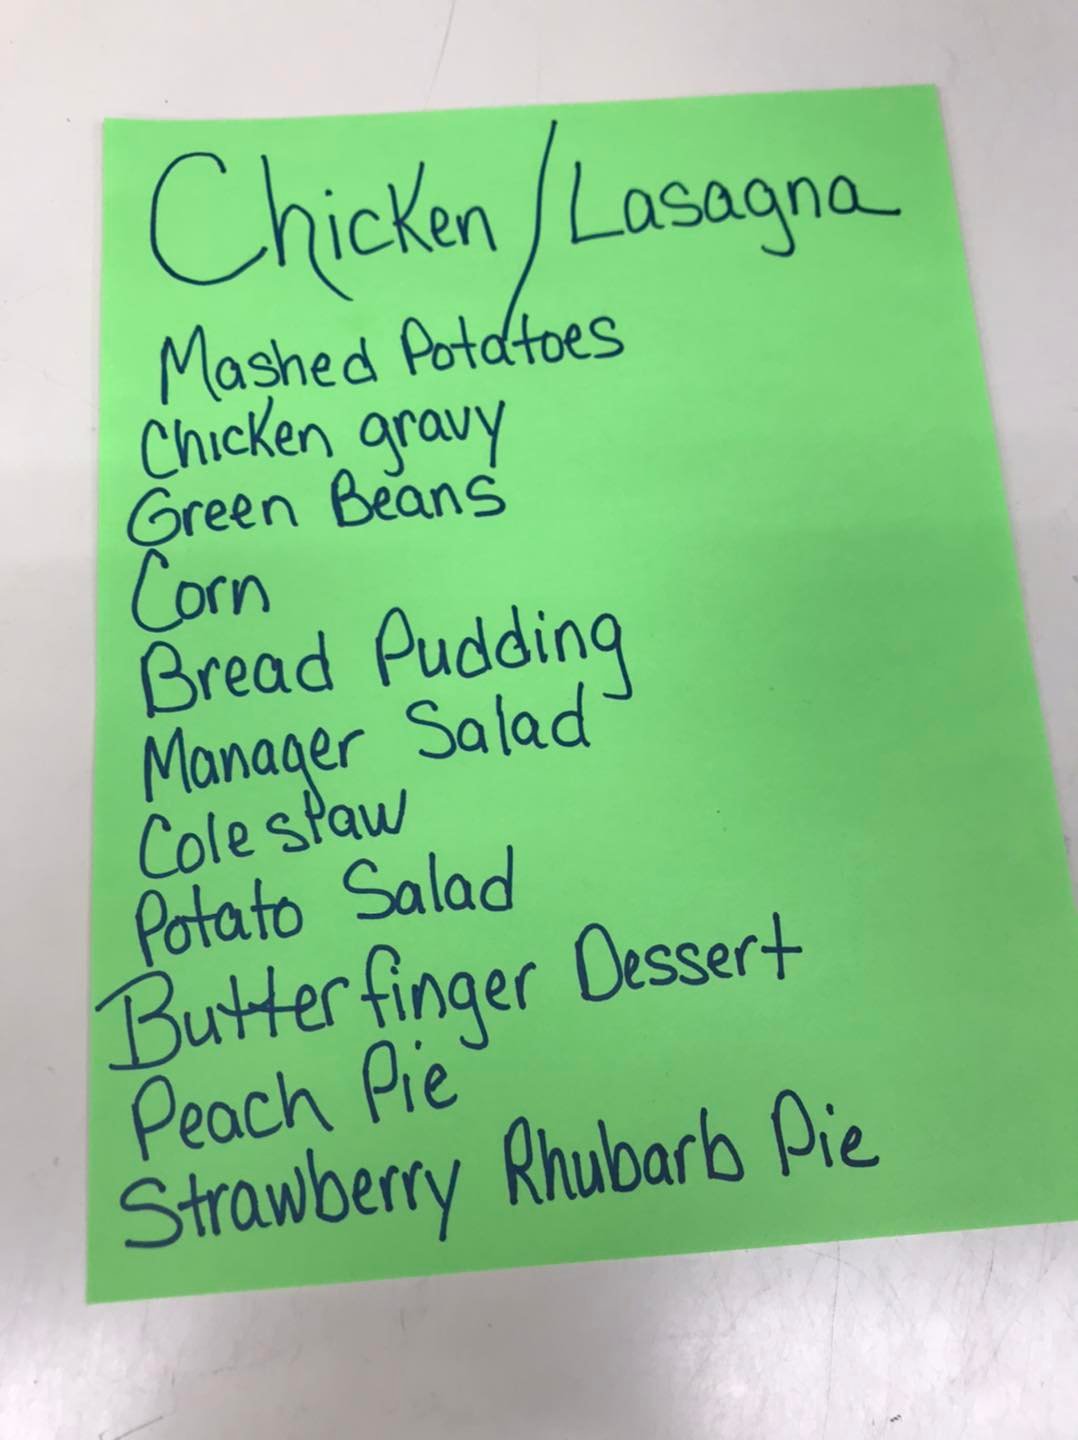 Chicken / Lasagna
Mashed Potatoes
Chicken gravy
Green Beans
Corn
Bread Pudding
Manager Salad
Cole slaw
Potato Salad
Butterfinger Dessert
Peach Pie
Strawberry Rhubarb Pie